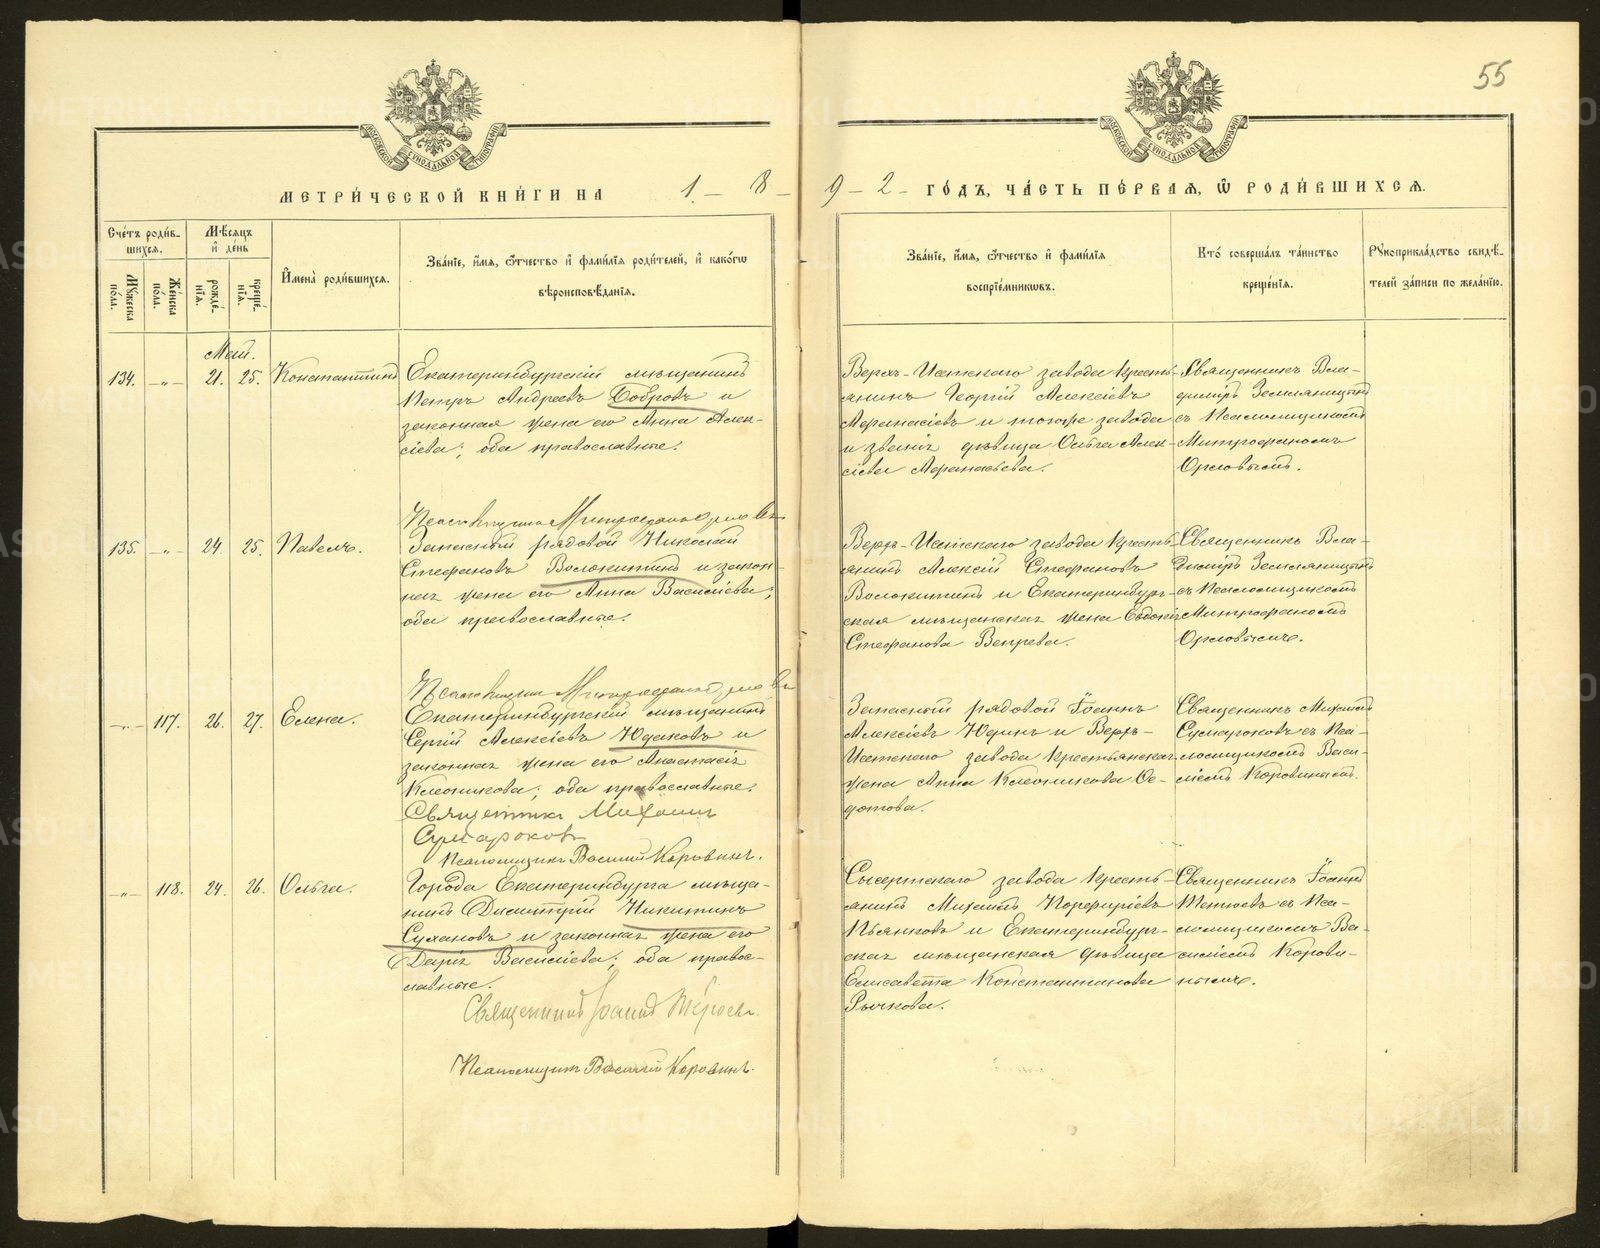 55
МОСКОВСКОЙ СУНОДАЛЬНОЙ ТИПОГРАФІИ
МОСКОВСКОЙ СУНОДАЛЬНОЙ ТИПОГРАФІИ
МЕТРИ́ЧЕСКОЙ КНИ́ГИ НА 1 - 8 - 9 - 2 - ГО́ДЪ, ЧА́СТЬ ПЕ́РВАЯ, Ѿ РОДИ́ВШИХСЯ.
Сче́тъ роди́в-
шихся.
Му́жеска по́ла.
Же́нска по́ла.
Мѣ́сяцъ
и҆ де́нь
рожде́-
нїя.
креще́-
нїя.
И҆мена̀ роди́вшихся.
Зва́нїе, и҆́мя, ѻ҆́тчество и҆ фами́лїя роди́телей, и҆ како́гѡ
вѣроисповѣ́данїя.
Зва́нїе, и҆́мя, ѻ҆́тчество и҆ фами́лїя
воспрїе́мникѡвъ.
Кто̀ соверша́лъ та́инство
креще́нїя.
Рꙋкоприкла́дство свидѣ́-
телей за́писи по жела́нїю.
Май.
134. -„- 21. 25. Константинъ
Екатеринбургскій мѣщанинъ
Петръ Андреевъ Бобровъ и
законная жена его Анна Алек-
сіева; оба православные.
Верхъ-Исетскаго завода кресть-
янинъ Георгій Алексіевъ
Афанасіевъ и тогоже завода
и званія дѣвица Ольга Алек-
сіева Афанасьева.
Священникъ Вла-
димиръ Земляницынъ
съ Псаломщикомъ
Митрофаномъ
Орловымъ.
Псаломщикъ Митрофанъ Орловъ
135. -„- 24. 25. Павелъ.
Запасный рядовой Николай
Стефановъ Волокитинъ и закон-
ная жена его Анна Василіева;
оба православные.
Верхъ-Исетскаго завода кресть-
янинъ Алексій Стефановъ
Волокитинъ и Екатеринбург-
ская мѣщанская жена Евдокія
Стефанова Вепрева.
Священникъ Вла-
димиръ Земляницынъ
съ Псаломщикомъ
Митрофаномъ
Орловымъ.
Псаломщикъ Митрофанъ Орловъ
-„- 117. 26. 27. Елена.
Екатеринбургскій мѣщанинъ
Сергій Алексіевъ Юдаковъ и
законная жена его Анастасія
Клеоникова; оба православные.
Священникъ Михаилъ
Сумароковъ
Псаломщикъ Василій Коровинъ.
Запасный рядовой Іоаннъ
Алексіевъ Юдинъ и Верхъ-
Исетскаго завода крестьянская
жена Анна Клеоникова Ѳе-
дотова.
Священникъ Михаилъ
Сумароковъ съ Пса-
ломщикомъ Васи-
ліемъ Коровинымъ.
-„- 118. 24. 26. Ольга.
Города Екатеринбурга мѣща-
нинъ Димитрій Никитинъ
Сухановъ и законная жена его
Дарія Василіева; оба правос-
лавные.
Священникъ Іоаннъ
Псаломщикъ Василій Коровинъ.
Сысертскаго завода кресть-
янинъ Михаилъ Порфиріевъ
Пьянковъ и Екатеринбург-
ская мѣщанская дѣвица
Елисавета Константинова
Рычкова.
Священникъ Іоаннъ
съ Пса-
ломщикомъ Ва-
силіемъ Корови-
нымъ.
METRIKI.GASO-URAL.RU